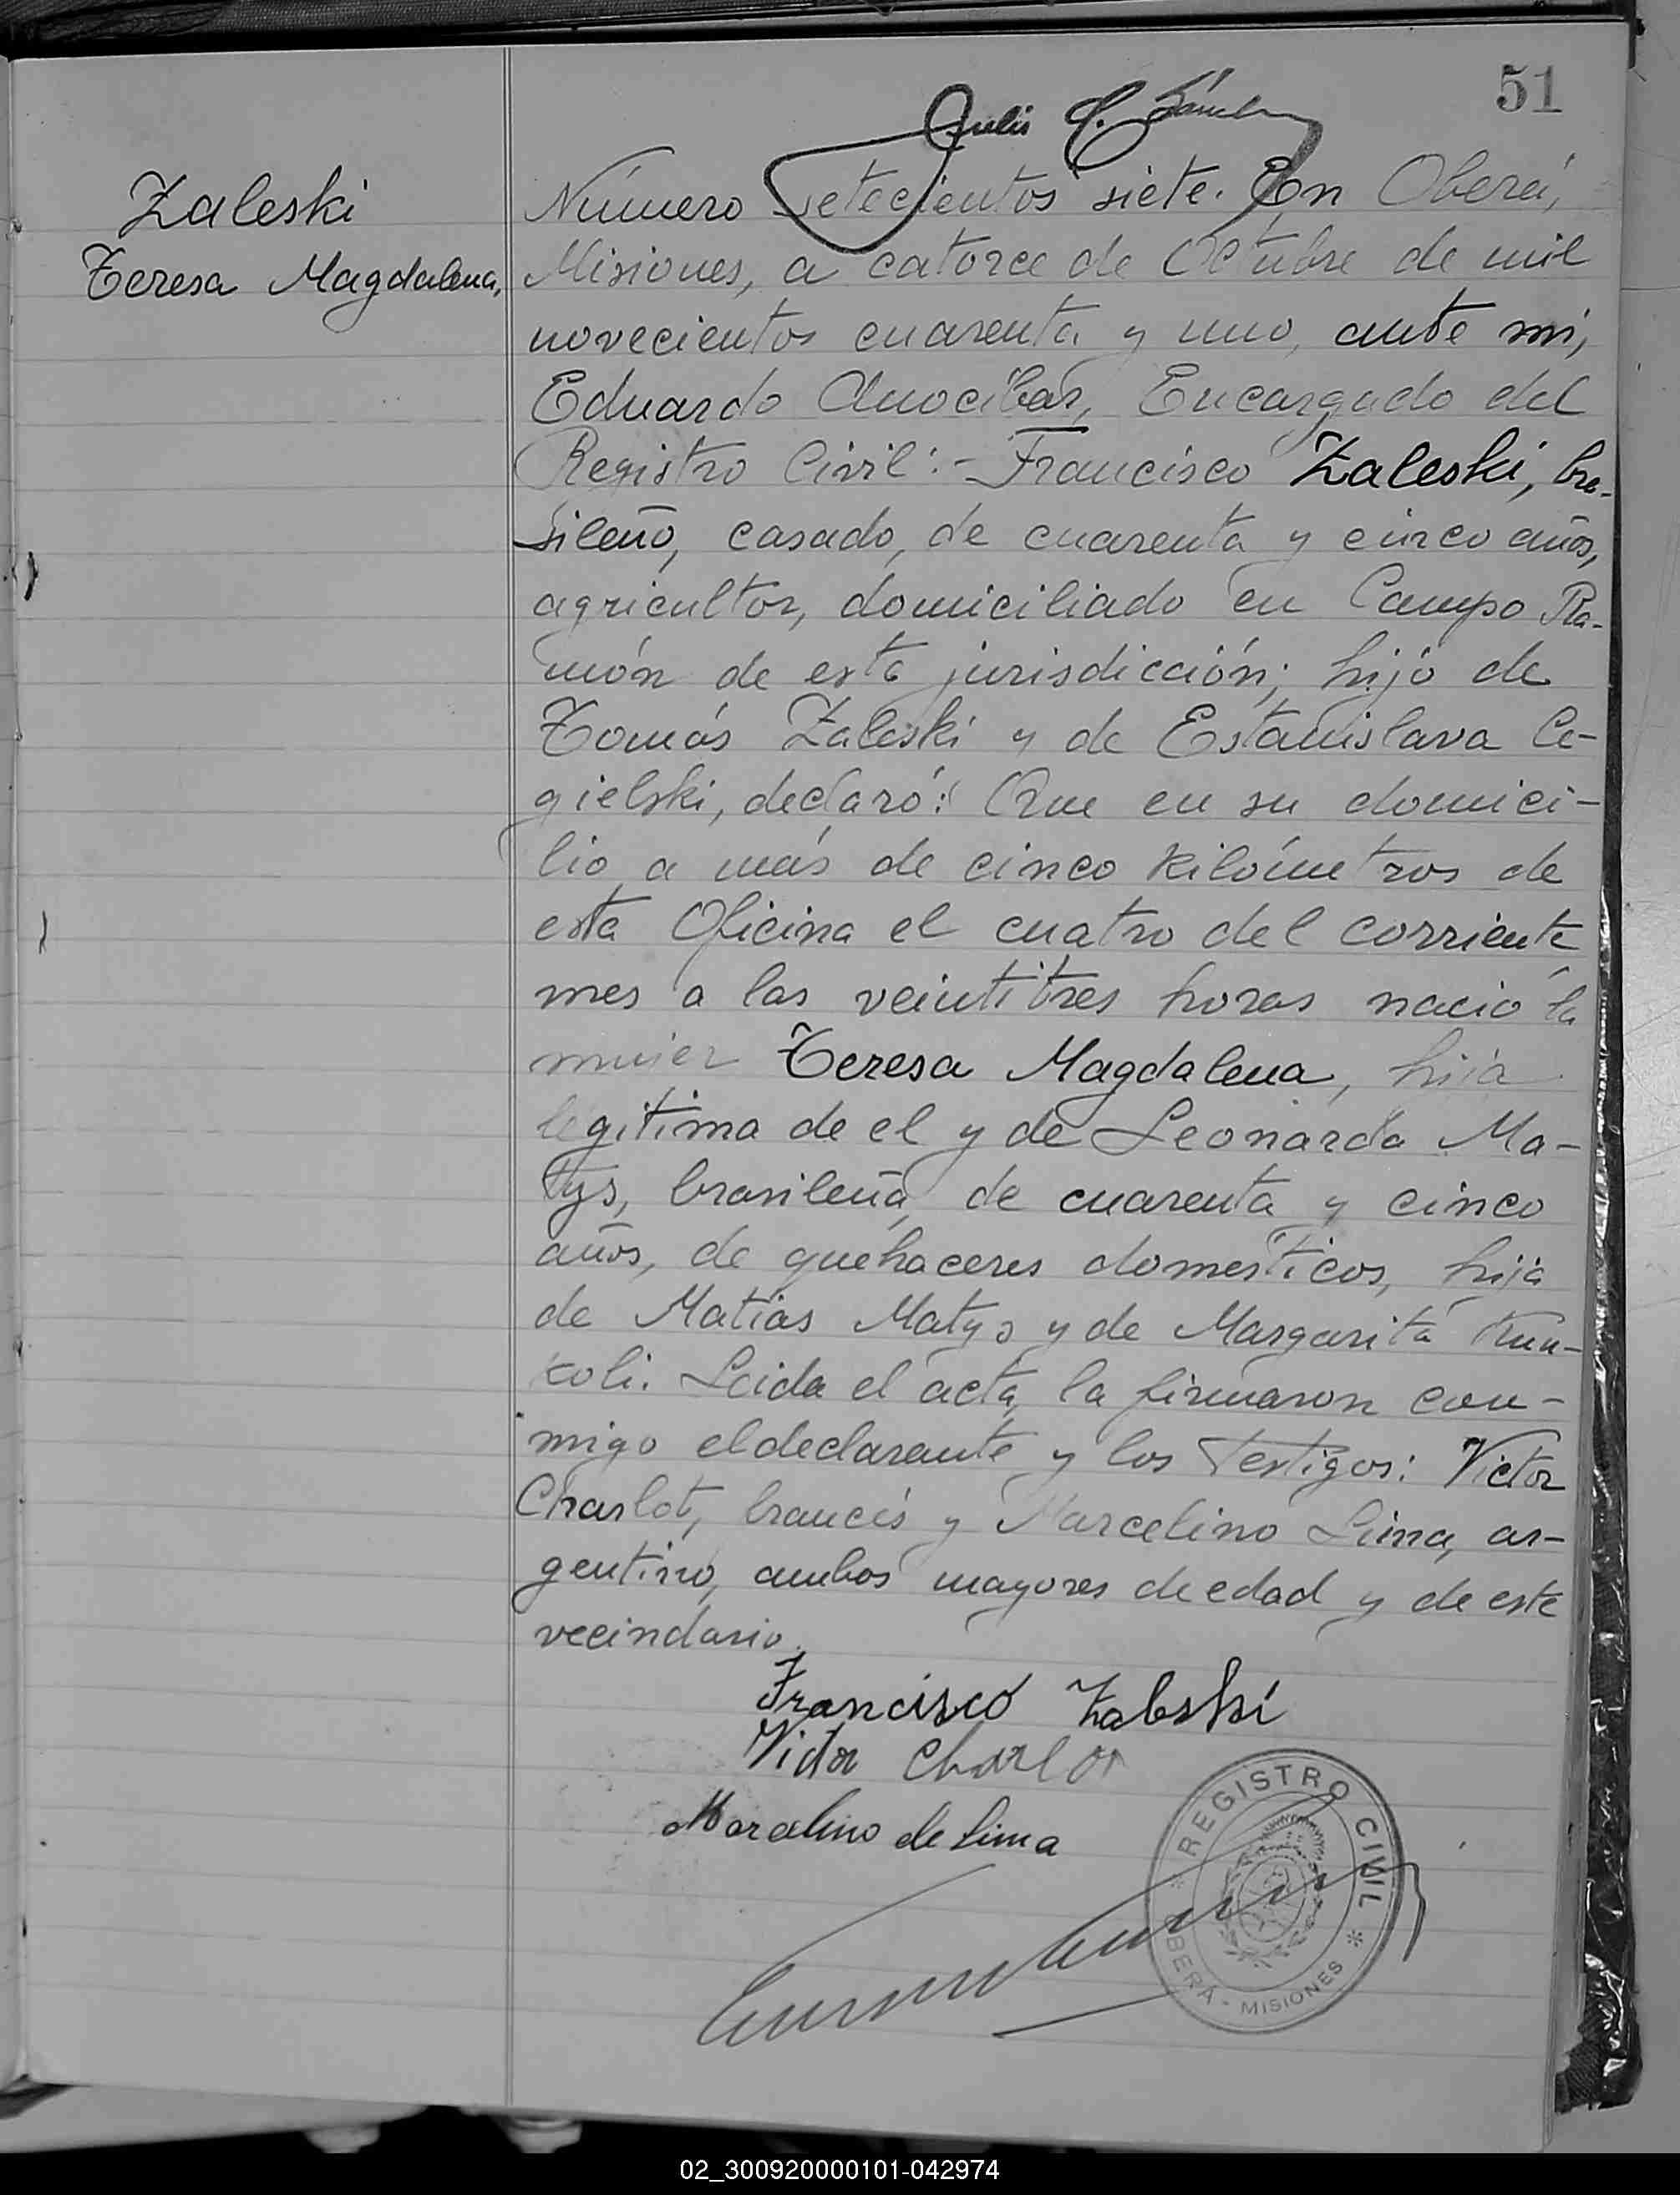 51
Zaleski
Teresa Magdalena,
Número setecientos siete. En Oberá,
Misiones, a catorce de Octubre de mil
novecientos cuarenta y uno, ante mi,
Eduardo Anocíbar, Encargado del
Registro Civil:- Francisco Zaleski, bra-
sileño, casado, de cuarenta y cinco años,
agricultor, domiciliado en Campo Ra-
món de esta jurisdicción; hijo de
Tomás Zaleski y de Estanislava Ce-
gielski, declaró: Que en su domici-
lio a más de cinco kilómetros de
esta Oficina el cuatro del corriente
mes a las veintitres horas nació la
mujer Teresa Magdalena, hija
legitima de el y de Leonarda Ma-
tys, brasileña, de cuarenta y cinco
años, de quehaceres domésticos, hija
de Matías Matys y de Margarita
koli. Leida el acta, la firmaron con-
migo el declarante y los testigos: Victor
Charlot, francés y Marcelino Lima, ar-
gentino, ambos mayores de edad y de este
vecindario.
Francisco Zaleski
Victor Charlot
Marcelino de Lima
REGISTRO CIVIL
OBERÁ - MISIONES
02_300920000101-042974